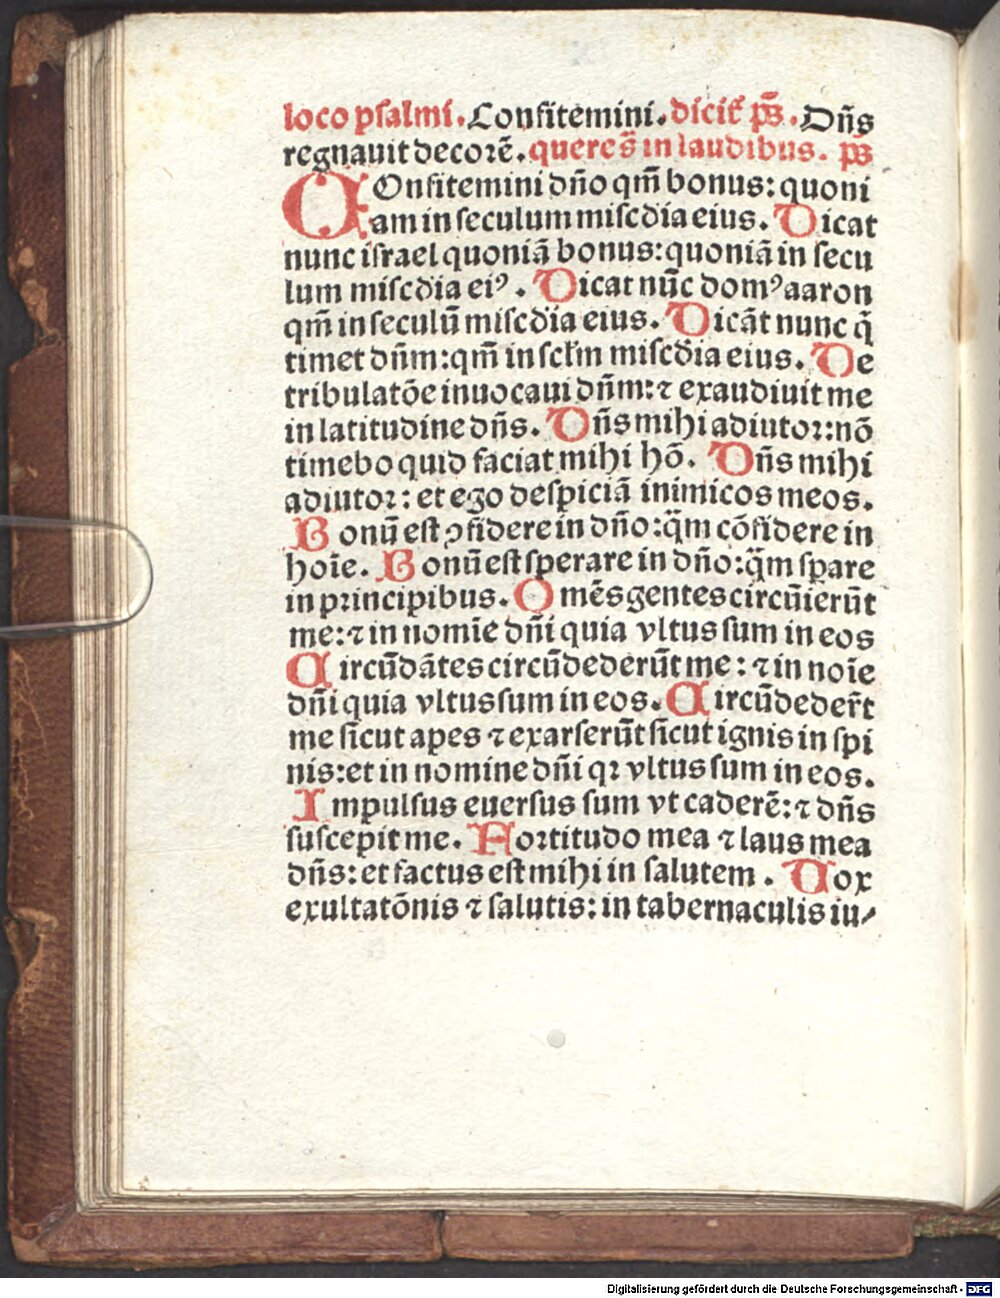 loco psalmi. Confitemini. dicit᷑ ps̄. Dn̄s
regnauit decorē. queres̄ in laudibus. ps̄
COnfitemini dn̄o qm̄ bonus: quoni
am in seculum misc̄dia eius. Dicat
nunc israel quoniā bonus: quoniā in secu
lum misc̄dia eiꝰ. Dicat nūc domꝰ aaron
qm̄ in seculū misc̄dia eius. Dicāt nunc q̄
timet dn̄m: qm̄ in scl̄m misc̄dia eius. De
tribulatōe inuocaui dn̄m: ⁊ exaudiuit me
in latitudine dn̄s. Dn̄s mihi adiutor: nō
timebo quid faciat mihi hō. Dn̄s mihi
adiutor: et ego despiciā inimicos meos.
Bonū est ꝯfidere in dn̄o: q̈m cōfidere in
hoīe. Bonū est sperare in dn̄o: q̈m sꝑare
in principibus. Omēs gentes circūierūt
me: ⁊ in nomīe dn̄i quia vltus sum in eos
Circūdātes circūdederūt me: ⁊ in noīe
dn̄i quia vltus sum in eos. Circūdeder̄t
me sicut apes ⁊ exarserūt sicut ignis in spi
nis: et in nomine dn̄i qꝛ vltus sum in eos.
Impulsus euersus sum vt caderē: ⁊ dn̄s
suscepit me. Fortitudo mea ⁊ laus mea
dn̄s: et factus est mihi in salutem. Vox
exultatōnis ⁊ salutis: in tabernaculis iu⸗
Digitalisierung gefördert durch die Deutsche Forschungsgemeinschaft - DFG